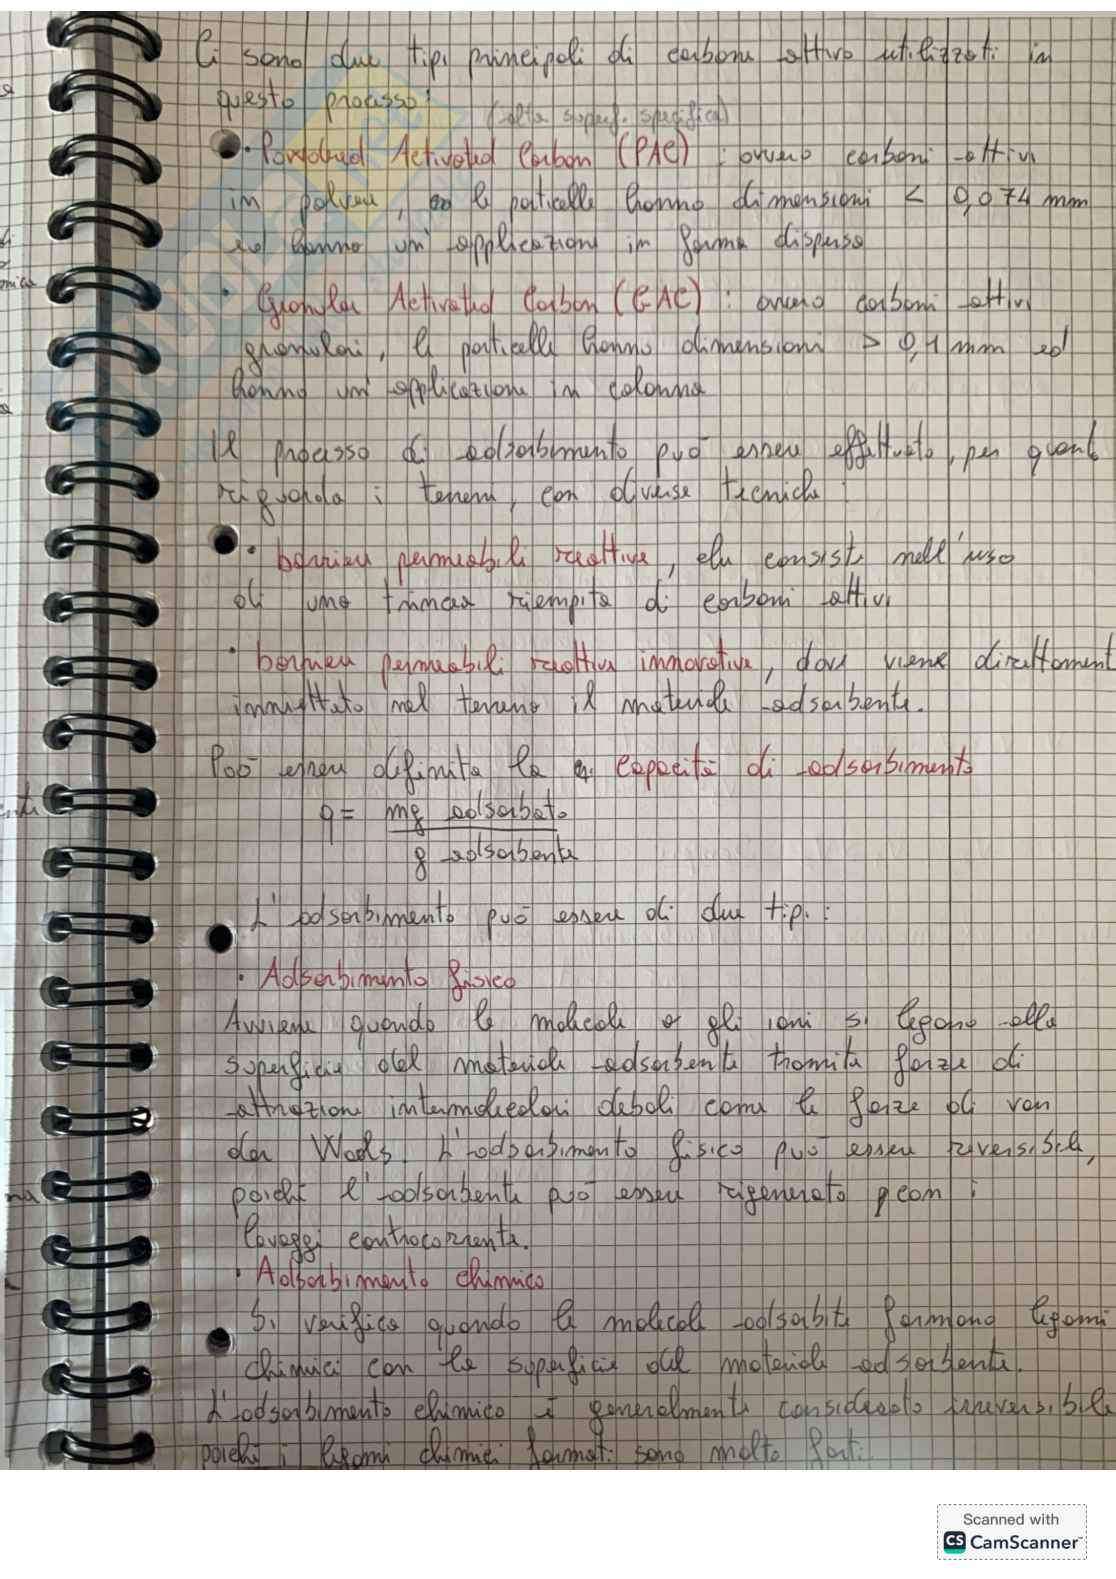 Ci sono due tipi principali di carbone attivo utilizzati in
questo processo:
(alta superf. specifica)
• Powdered Activated Carbon (PAC) : ovvero carboni attivi
in polvere, le particelle hanno dimensioni < 0,074 mm
ed hanno un'applicazione in forma dispersa
• Granular Activated Carbon (GAC) : ovvero carboni attivi
granulari, le particelle hanno dimensioni > 0,1 mm ed
hanno un'applicazione in colonna
Il processo di adsorbimento può essere effettuato, per quant
riguarda i terreni, con diverse tecniche :
• barriere permeabili reattive, che consiste nell'uso
di una trincea riempita di carboni attivi
• barriere permeabili reattive innovative, dove viene direttament
immettato nel terreno il materiale adsorbente.
Può essere definita la capacità di adsorbimento
q = mg adsorbato
g adsorbente
L'adsorbimento può essere di due tipi :
• Adsorbimento fisico
Avviene quando le molecole o gli ioni si legano alla
superficie del materiale adsorbente tramite forze di
attrazione intermolecolari deboli come le forze di van
der Waals. L'adsorbimento fisico può essere reversibile,
poiché l'adsorbente può essere rigenerato con i
lavaggi controcorrente.
• Adsorbimento chimico
Si verifica quando le molecole adsorbite formano legami
chimici con la superficie del materiale adsorbente.
L'adsorbimento chimico è generalmente considerato irreversibile
poiché i legami chimici formati sono molto forti.
Scanned with
CS CamScanner